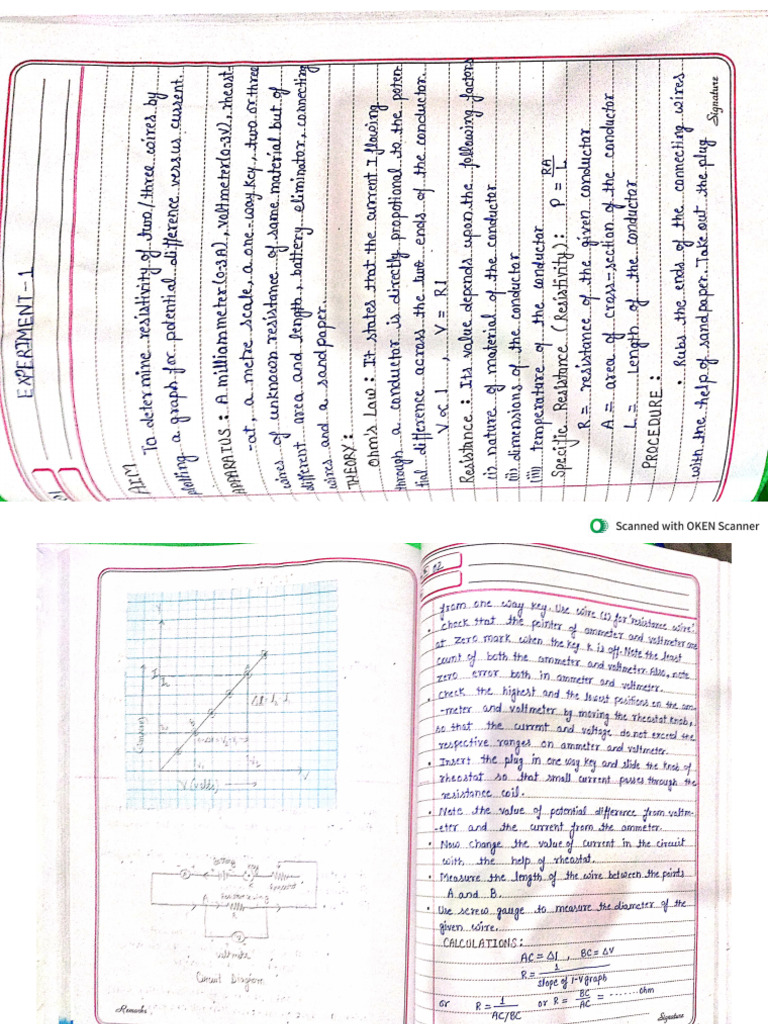 EXPERIMENT-1
AIM
To determine resistivity of two/three wires by
plotting a graph for potential difference versus current.
APPARATUS : A milliammeter (0-3A), voltmeter (0-3V), rheost-
-at, a metre scale, a one-way key, two or three
wires of unknown resistance of same material but of
different area and length, battery eliminator, connecting
wires and a sandpaper.
THEORY :
Ohm's Law : It states that the current I flowing
through a conductor is directly propotional to the poten-
tial difference across the two ends of the conductor.
V ∝ I , V = RI
Resistance : Its value depends upon the following factors
(i) nature of material of the conductor
(ii) dimensions of the conductor
(iii) temperature of the conductor
Specific Resistance (Resistivity) : P = RA/L
R = resistance of the given conductor
A = area of cross-section of the conductor
L = length of the conductor
PROCEDURE :
• Rubs the ends of the connecting wires
with the help of sandpaper. Take out the plug
Signature
Scanned with OKEN Scanner
02
from one way key. Use wire (1) for 'resistance wire'.
• Check that the pointer of ammeter and voltmeter are
at zero mark when the key K is off. Note the least
count of both the ammeter and voltmeter. Also, note
zero error both in ammeter and voltmeter.
• Check the highest and the lowest positions on the am-
-meter and voltmeter by moving the rheostat knob,
so that the current and voltage do not exceed the
respective ranges on ammeter and voltmeter.
• Insert the plug in one way key and slide the knob of
rheostat so that small current passes through the
resistance coil.
• Note the value of potential difference from voltm-
-eter and the current from the ammeter.
• Now change the value of current in the circuit
with the help of rheostat.
• Measure the length of the wire between the points
A and B.
• Use screw gauge to measure the diameter of the
given wire.
CALCULATIONS :
AC = ΔI , BC = ΔV
R = 1/slope of I-V graph
or R = 1/AC/BC or R = BC/AC = ....... ohm
Signature
Y
I
V (volts) →
V
Battery
Key
K
A
B
R
V
voltmeter
Circuit Diagram
Remarks